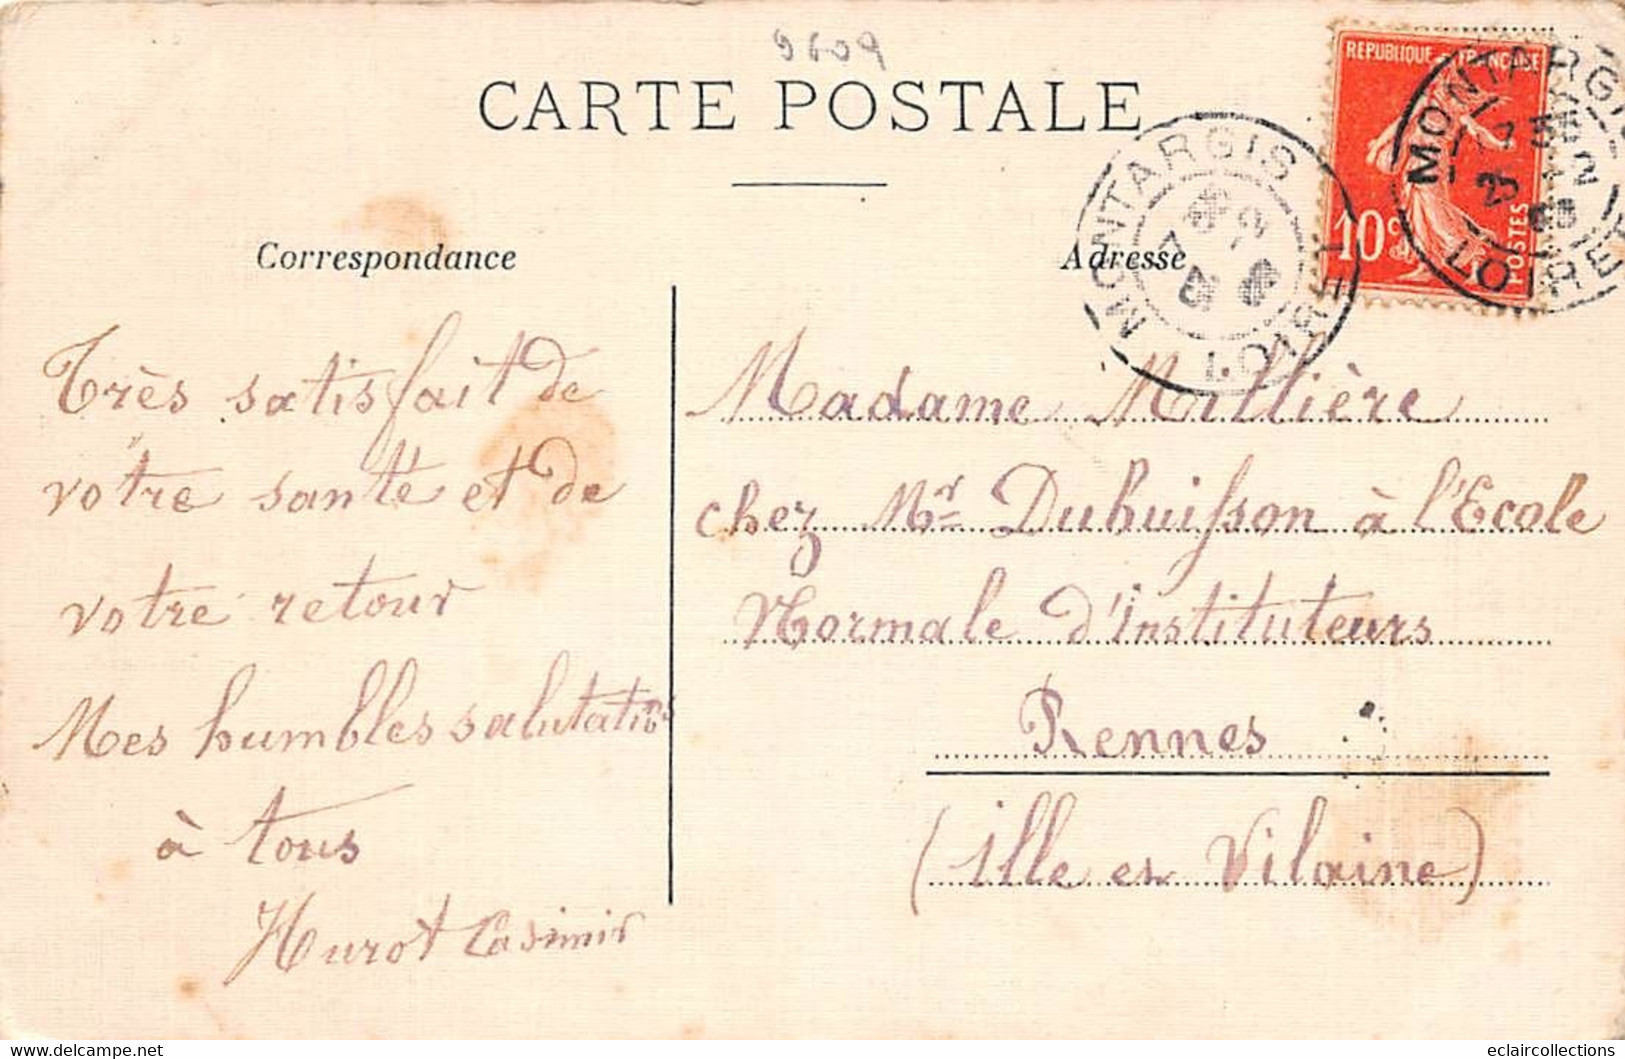 9609
CARTE POSTALE
REPUBLIQUE FRANCAISE
10c
POSTES
MONTARGIS
LOIRET
MONTARGIS
LOIRET
Correspondance
Adresse
Très satisfait de
votre santé et de
votre retour
Mes humbles salutatios
à tous
Hurot Casimir
Madame Millière
chez Mr Dubuisson à l'Ecole
Normale d'Instituteurs
Rennes
(Ille et Vilaine)
www.delcampe.net
eclaircollections